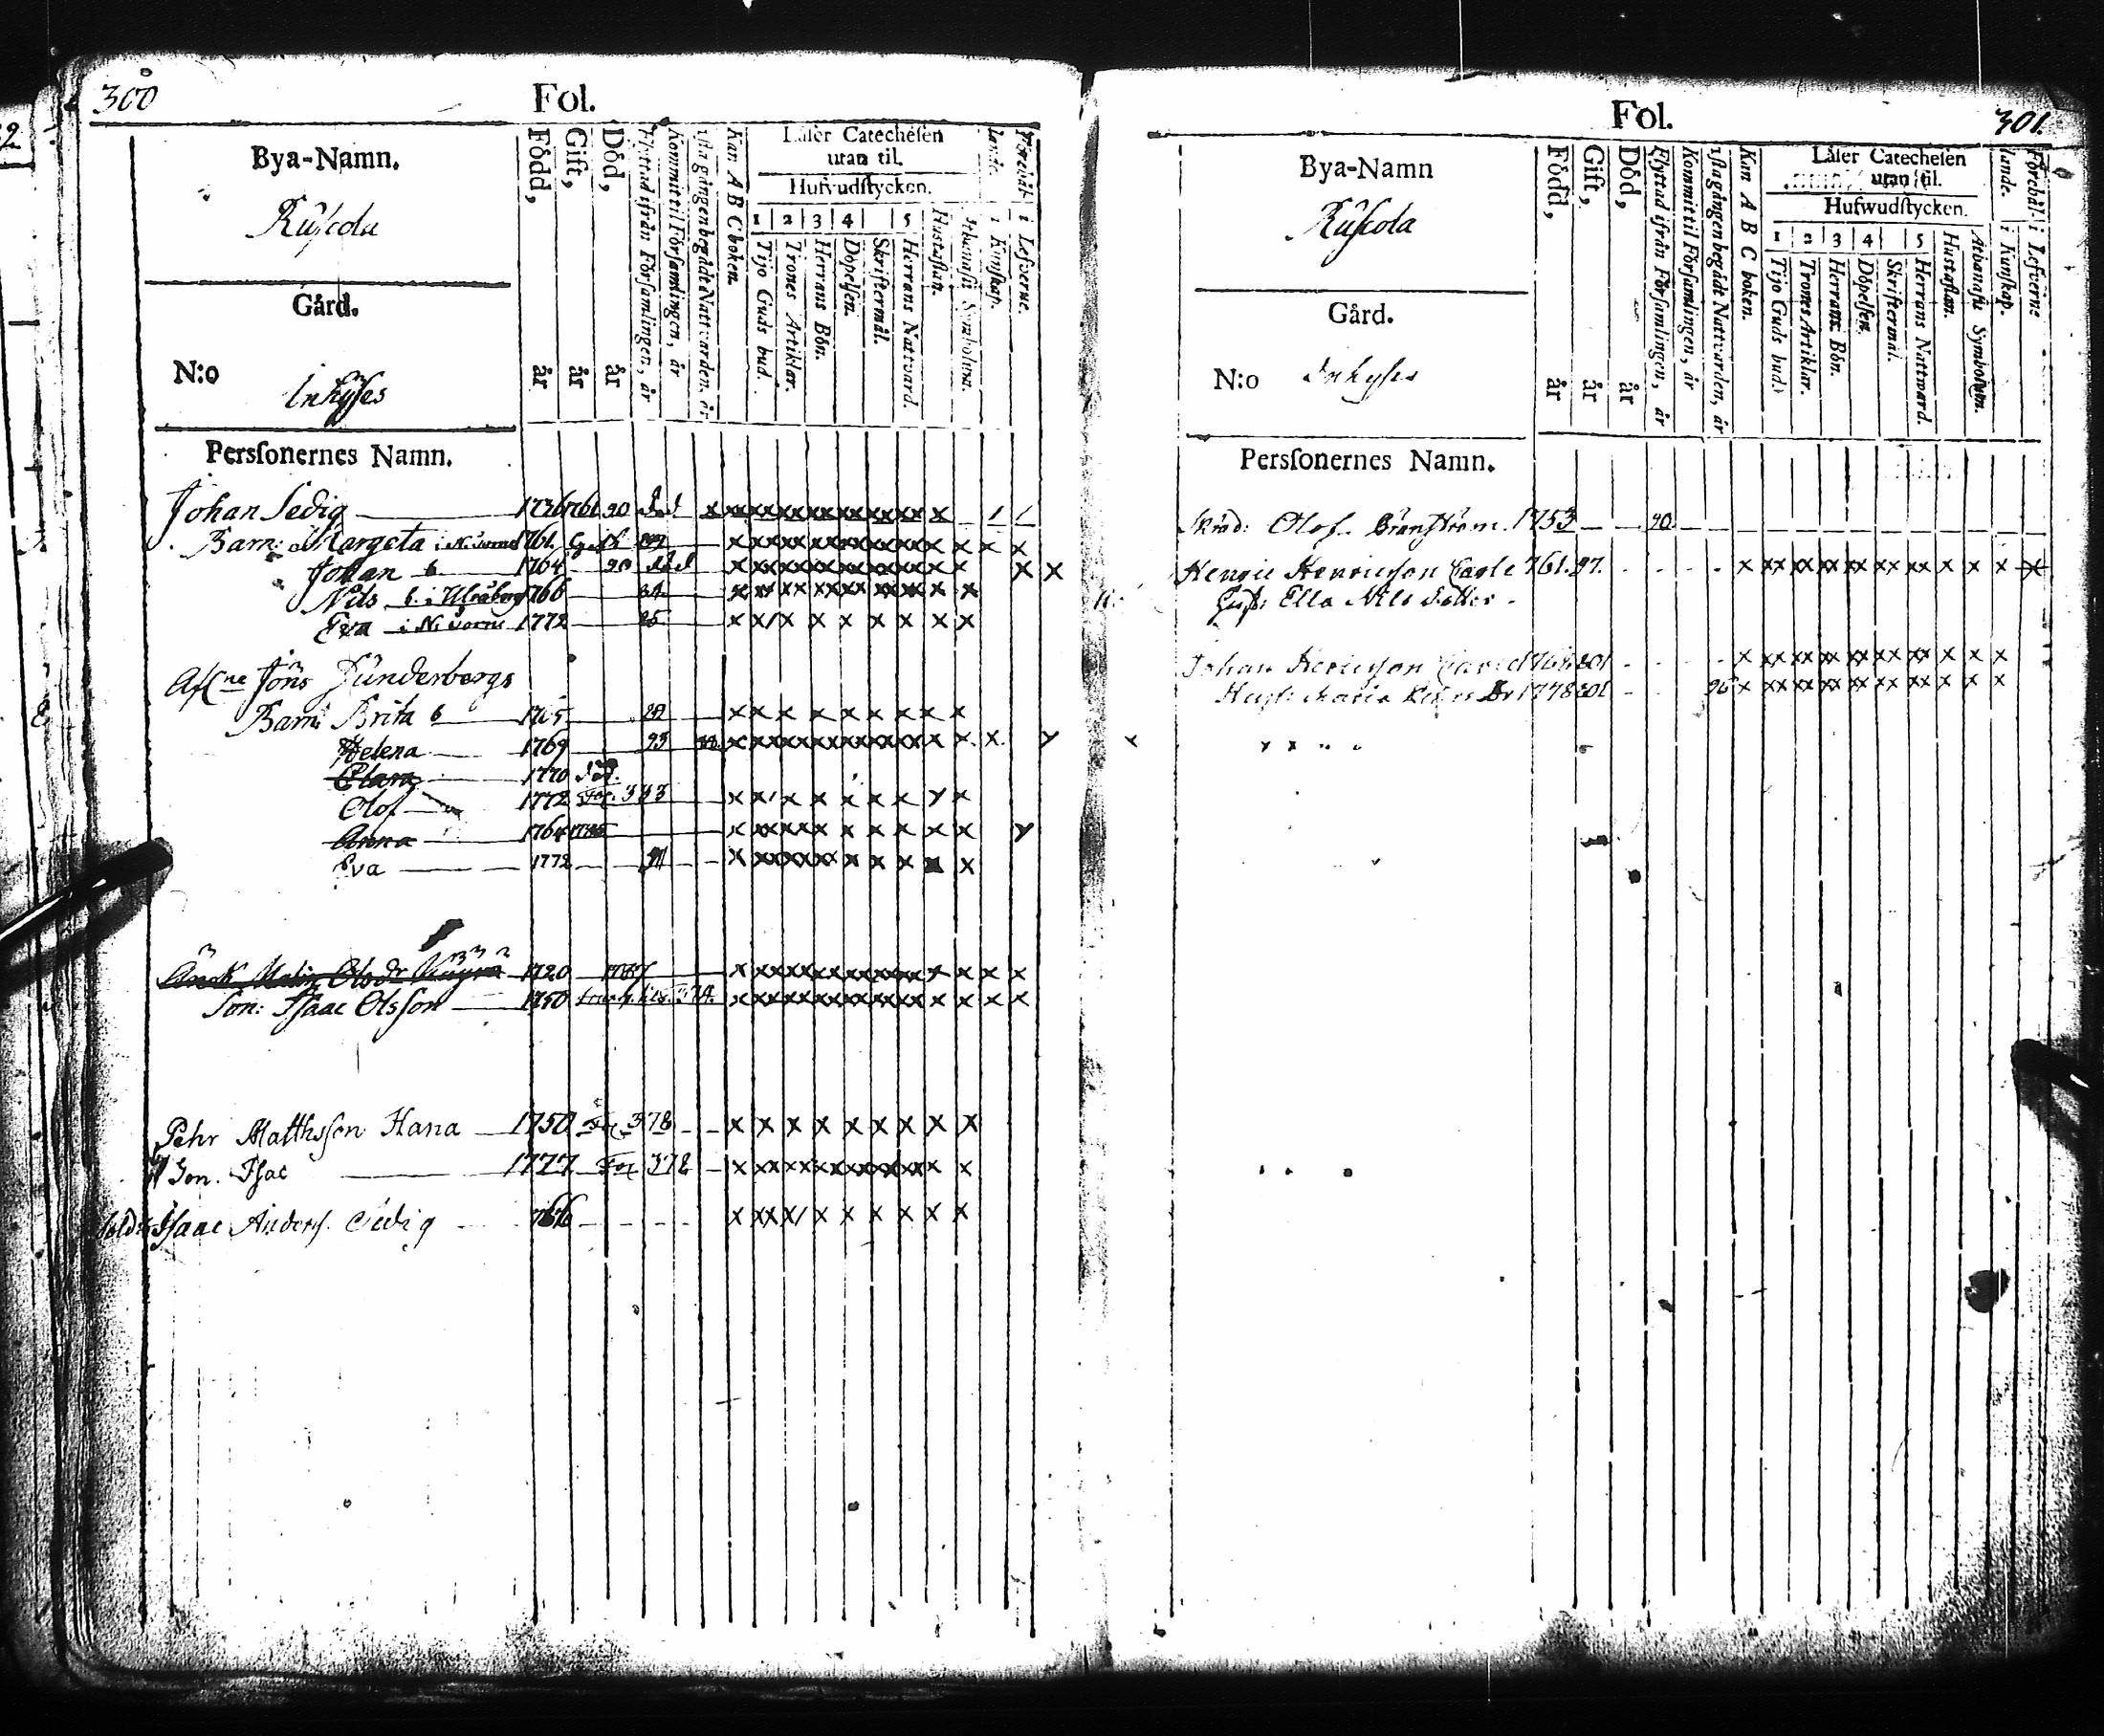 300
Fol.
Bya-Namn.
Ruskola
Gård.
N:o
Inhyses
Född, år
Gift, år
Död, år
Flyttad ifrån Församlingen, år
Kommit til Församlingen, år
1sta gången begådt Nattvarden, år
Kan A B C boken.
Läser Catechesen
utan til.
Hufvudstycken.
1 2 3 4 5
Tijo Guds bud.
Trones Artiklar.
Herrans Bön.
Döpelsen.
Skriftermål.
Herrans Nattvard.
Hustaflan.
Athanasii Symbolum.
Förehållande.
i Kunskap.
i Lefverne.
Personernes Namn.
Johan Sedig 1736 90 död
Barn: Margeta 1761 Gift
Johan b 1764 90 död
Nils b. 1766
Eva 1772 95
Afl:ne Jöns Sunderbergs
Barn: Brita b 1765
Helena 1769 93
Clara 1770 död
Olof 1772 Fol. 383
Anna 1764 1785
Eva 1772 91
Änck. Malin Olsdr 1720 1787
Son: Isaac Olsson 1750 374.
Pehr Matthsson Hana 1750 Fol. 378
Son. Isac 1777 Fol 378
Sold: Isaac Anders. Sedig 766
Fol.
301.
Bya-Namn
Ruskola
Gård.
N:o
Inhyses
Född, år
Gift, år
Död, år
Flyttad ifrån Församlingen, år
Kommit til Församlingen, år
1sta gången begådt Nattvarden, år
Kan A B C boken.
Läser Catechesen
utan til.
Hufwudstycken.
1 2 3 4 5
Tijo Guds bud.
Trones Artiklar.
Herrans Bön.
Döpelsen.
Skriftermål.
Herrans Nattward.
Hustaflan.
Athanasii Symbolum.
Förehållande.
i Kunskap.
i Lefverne
Personernes Namn.
Skräd: Olof Brantström. 1753 90
Henric Henricsson 761. 97.
Hust: Ella Nils dotter
Johan Henricsson 801
Hust: Maria Dr 1778 801 96